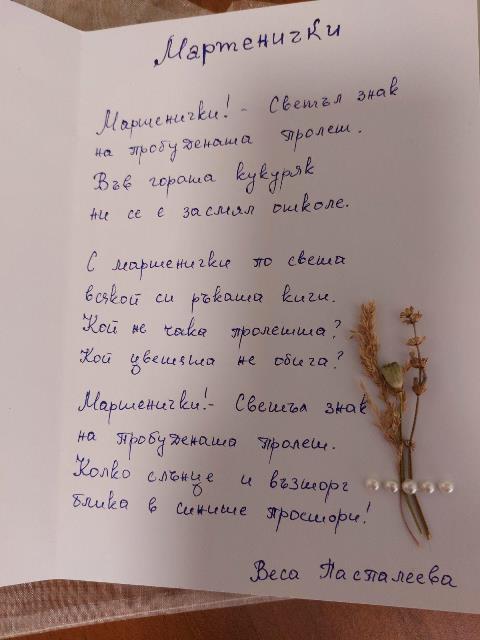 Мартенички
Мартенички! - Светъл знак
на пробудената пролет.
Във гората кукуряк
ни се е засмял отколе.
С мартенички по света
всякой си ръката кити.
Кой не чака пролетта?
Кой цветята не обича?
Мартенички! - Светъл знак
на пробудената пролет.
Колко слънце и възторг
блика в сините простори!
Веса Паспалеева